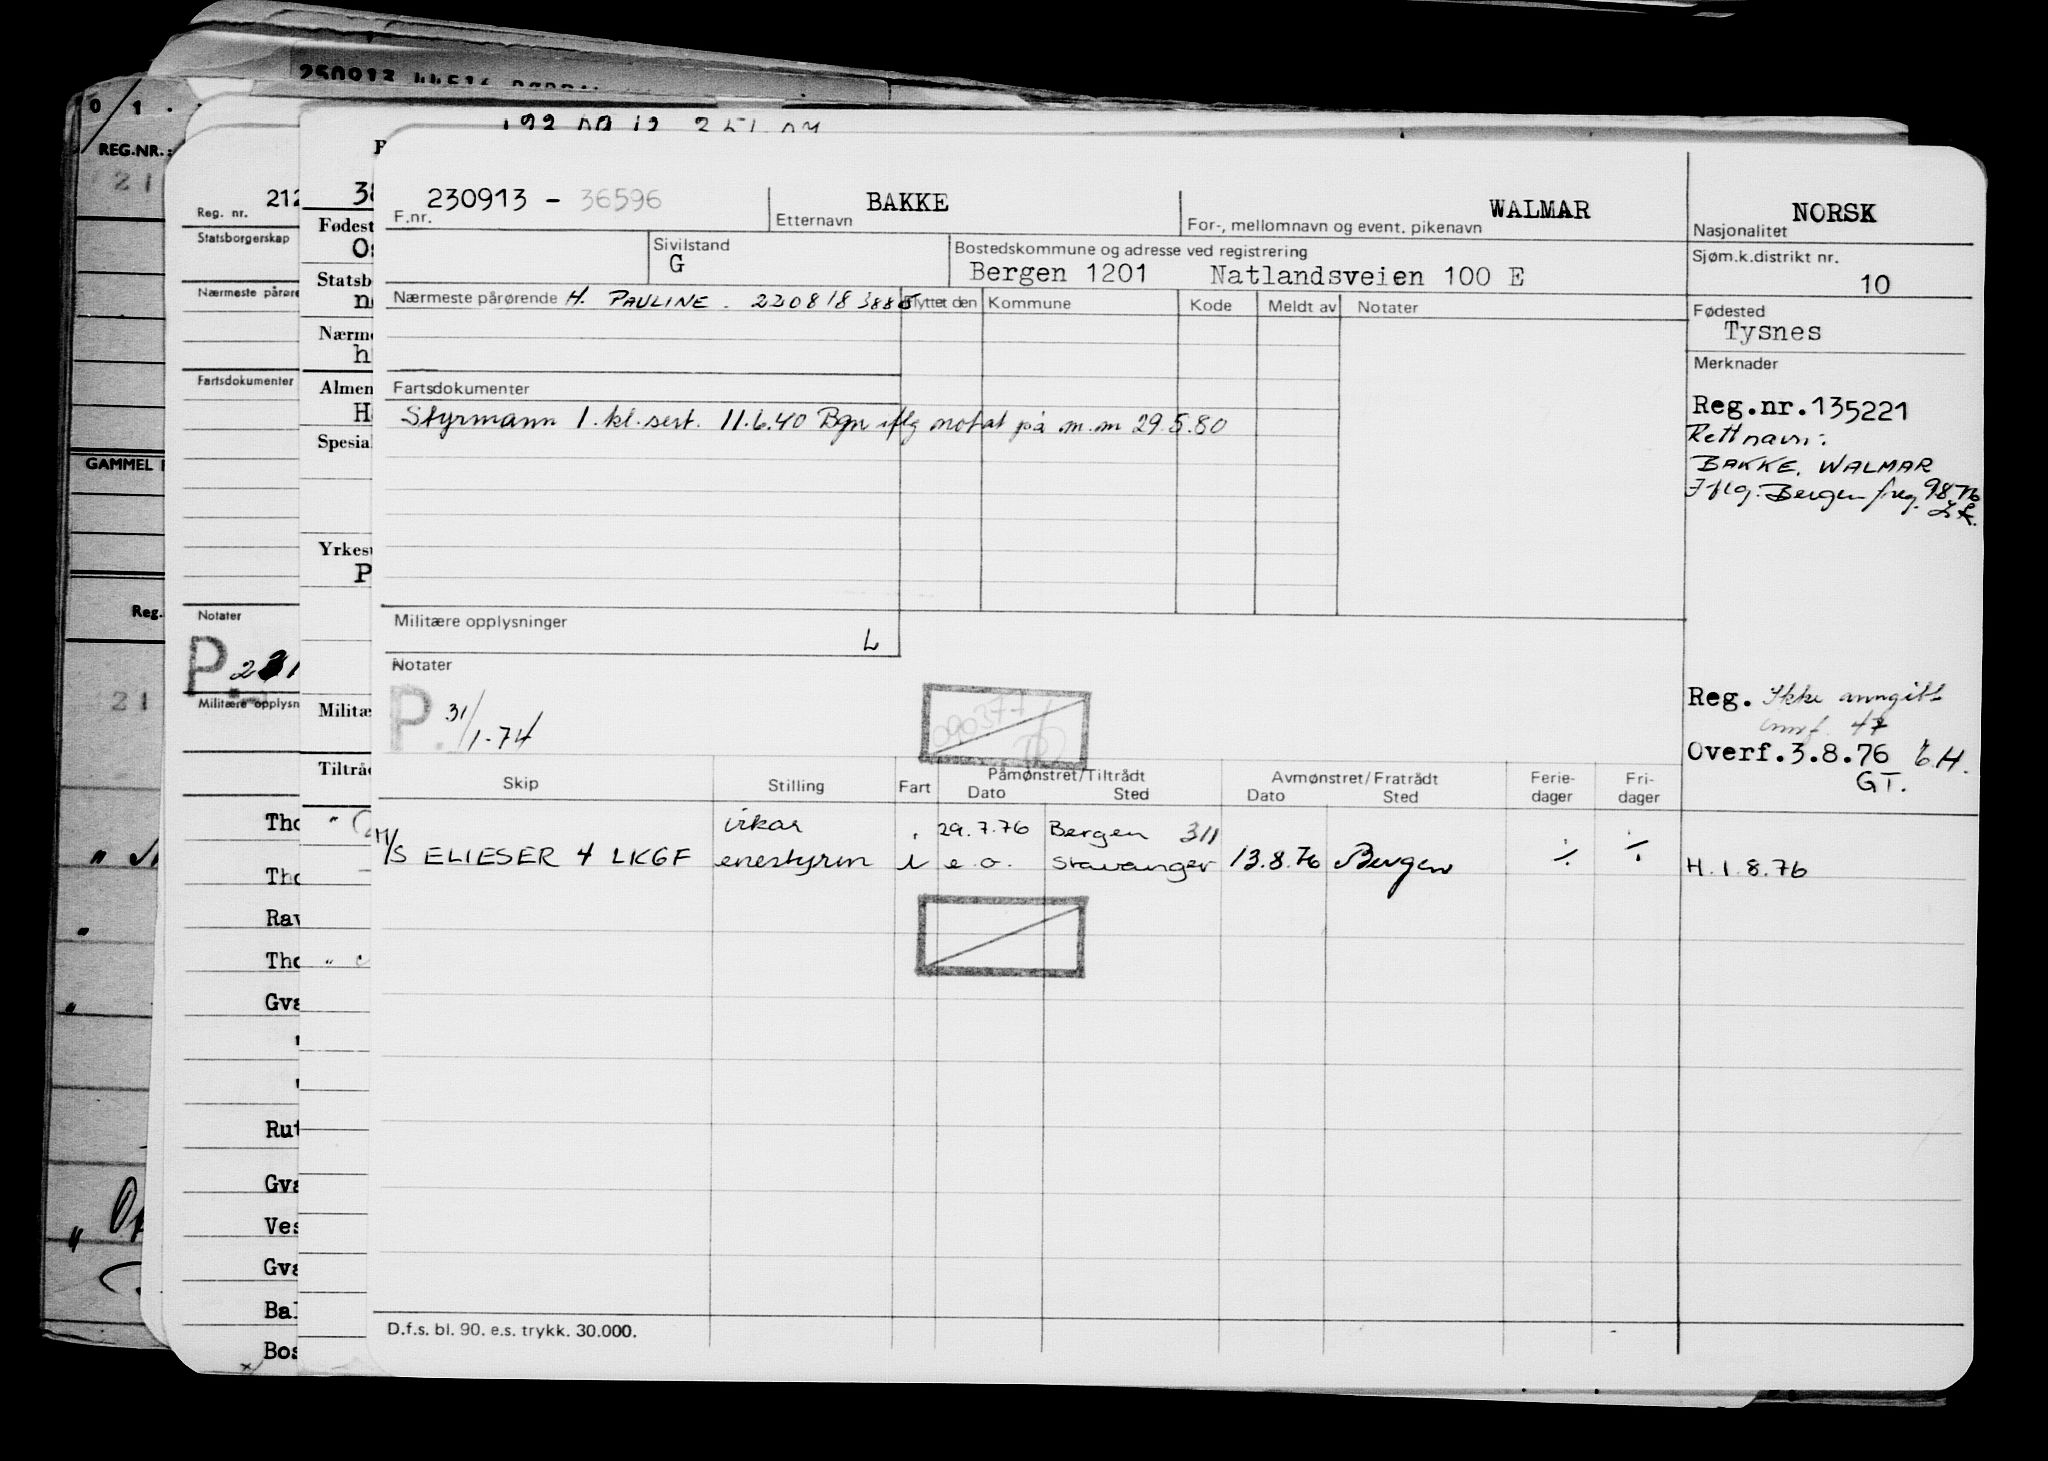 250913
192
0/1.
REG.NR.:
21
GAMMEL
Reg.
21
212
Reg. nr.
Statsborgerskap
Nærmeste pårøre
Fartsdokumenter
Notater
P 231
Militære opplysn
Tho
Tho
Rav
Tho
Gva
Rut
Gva
Ves
Gva
Bal
Bos
38
Fødest
Os
Statsb
Nærme
h
Almen
H
Spesial
Yrkesu
P
Militæ
Tiltråd
230913 - 36596 BAKKE WALMAR NORSK
F.nr. Etternavn For-, mellomnavn og event. pikenavn Nasjonalitet
Sivilstand Bostedskommune og adresse ved registrering Sjøm.k.distrikt nr.
G Bergen 1201 Natlandsveien 100 E 10
Nærmeste pårørende H. PAULINE. 220818 38885 Flyttet den Kommune Kode Meldt av Notater Fødested
Tysnes
Merknader
Fartsdokumenter
Styrmann 1. kl. sert. 11.6.40 Bgn iflg notat på m.m 29.5.80
Reg.nr.135221
Rett navn:
BAKKE, WALMAR
Iflg. Bergen freg. 9.8.76
Militære opplysninger
L
Notater
P. 31/1-74
090377
Reg. Ikke anngitt
47
Overf.3.8.76 E.H.
GT.
Skip Stilling Fart Påmønstret/Tiltrådt Avmønstret/Fratrådt Ferie- Fri-
Dato Sted Dato Sted dager dager
vikar , 29.7.76 Bergen 311
M/S ELIESER 4 LKGF enestyrm i e.o. Stavanger 13.8.76 Bergen ÷ ÷ H.1.8.76
D.f.s. bl. 90. e.s. trykk. 30.000.